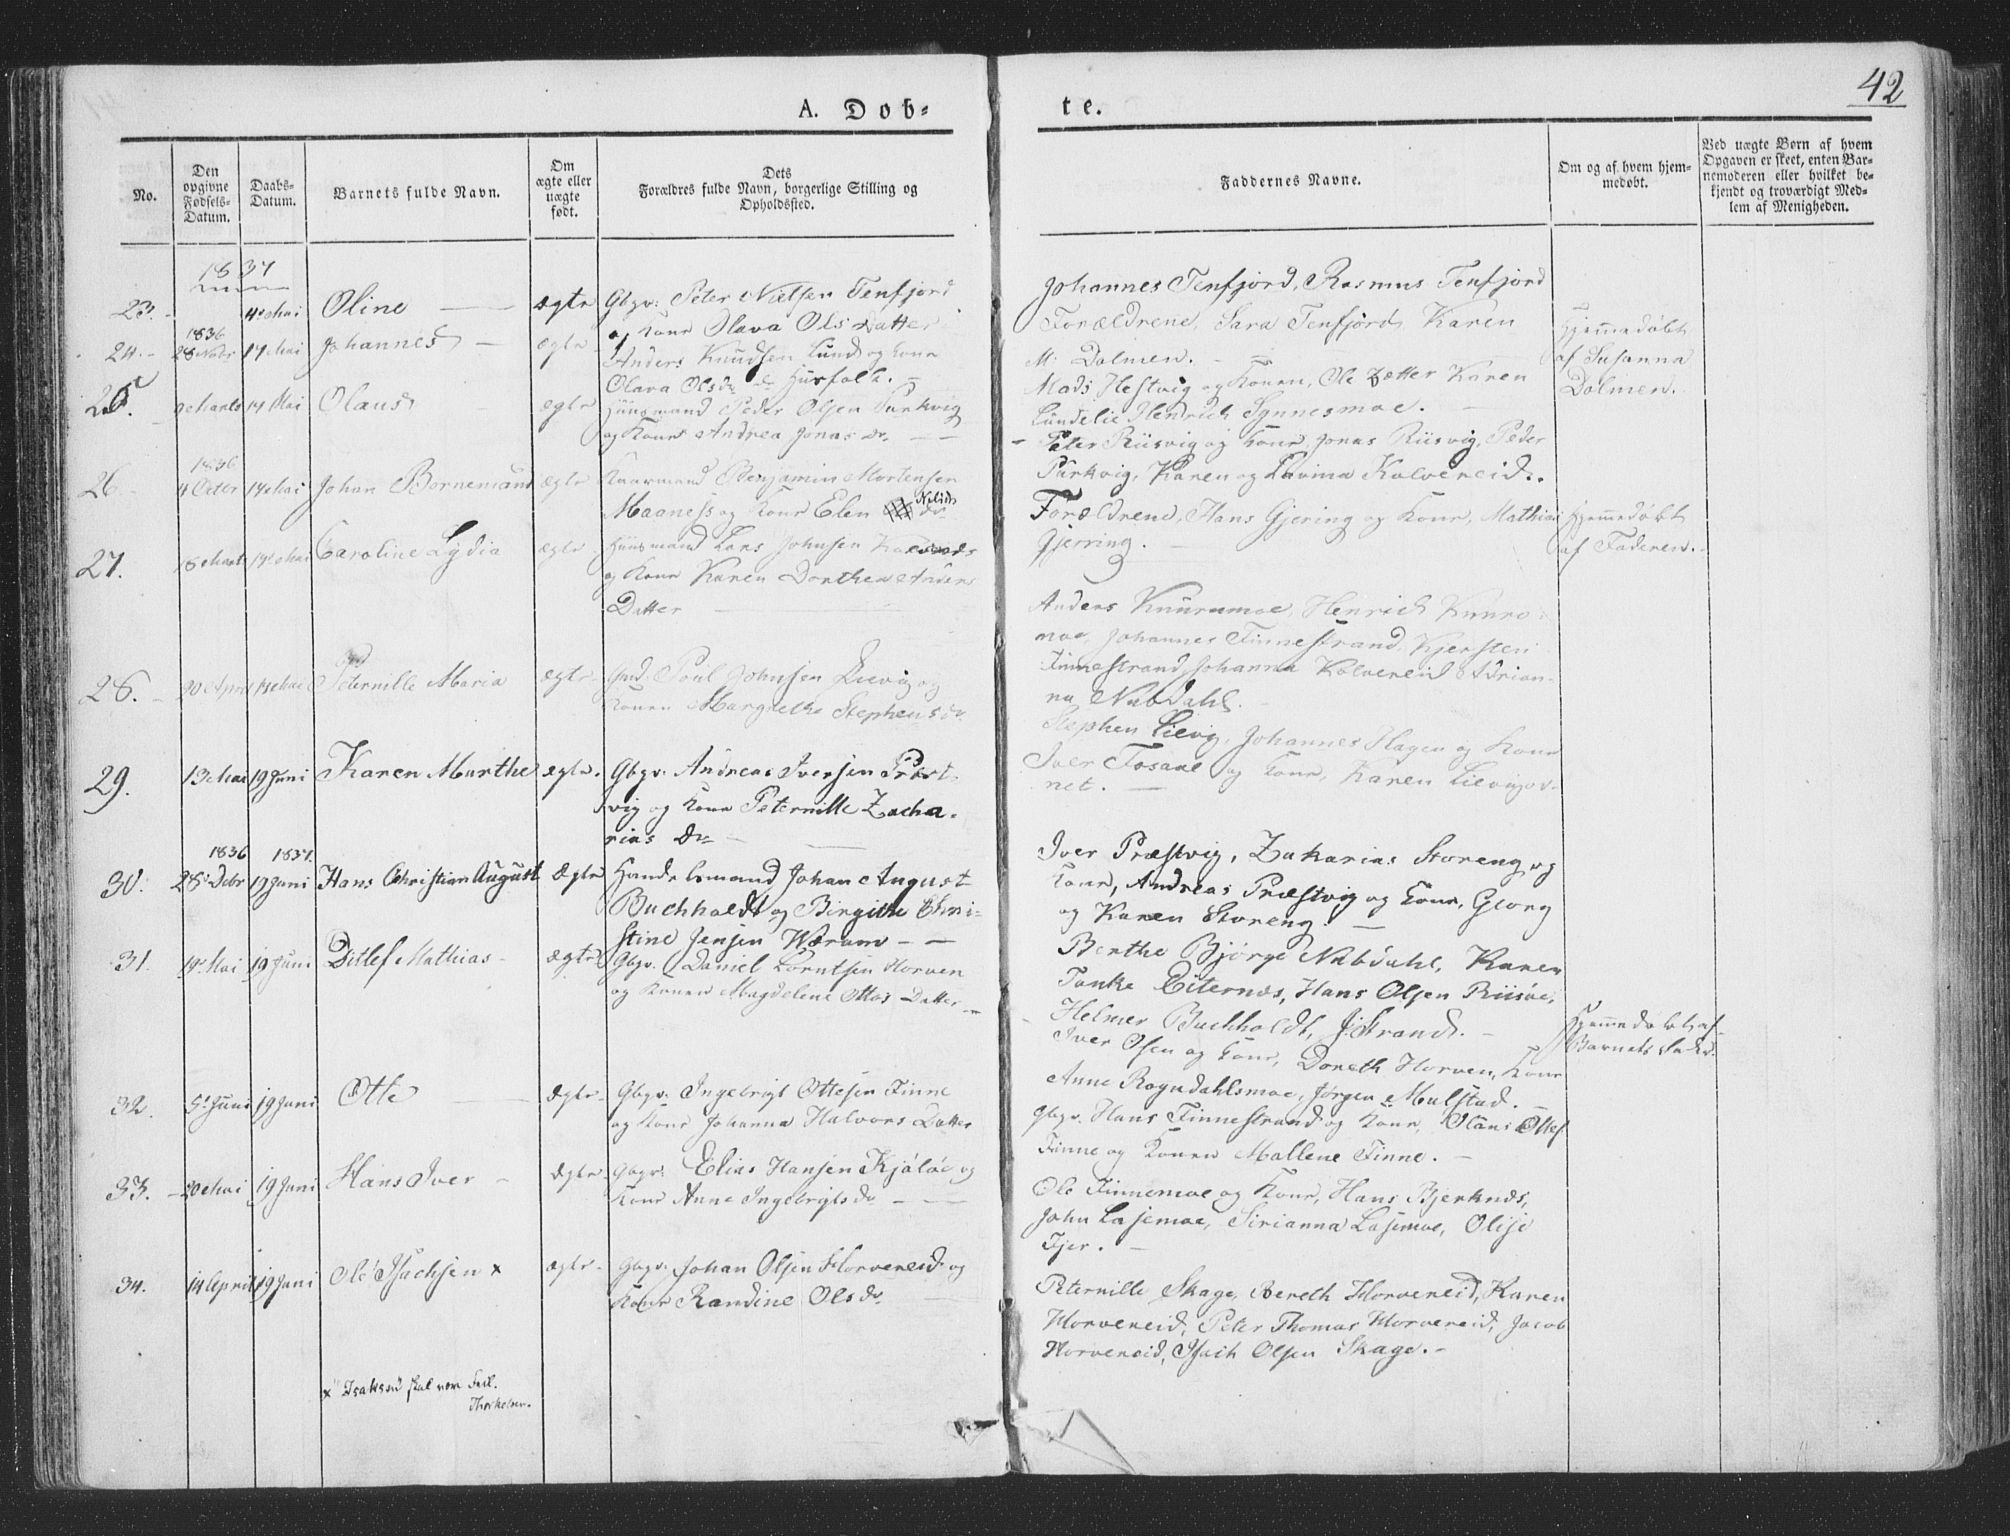 42
A. Døb-
te.
No.
Den
opgivne
Fødsels-
Datum.
Daabs-
Datum.
Barnets fulde Navn.
Om
ægte eller
uægte
født.
Dets
Forældres fulde Navn, borgerlige Stilling og
Opholdssted.
Faddernes Navne.
Om og af hvem hjem-
medøbt.
Ved uægte Børn af hvem
Opgaven er skeet, enten Bar-
nemoderen eller hvilket be-
kjendt og troværdigt Med-
lem af Menigheden.
1837
23. 4 Mai Oline ægte Gbgr: Peter Nielsen Tenfjord
og Kone Olava Ols Datter
Johannes Tenfjord, Rasmus Tenfjord
Forældrene, Sara Tenfjord, Karen
M: Dolmen.
1836
24. 28 Novbr 14 Mai Johannes ægte Anders Knudsen Lund og Kone
Olava Olsdr Huusfolk.
Mads Hestvig og Konen, Ole Zetter Karen
Lundelie, Hendrich Synnesmoe.
Hjemmedøbt
af Susanna
Dolmen.
25. Marts 14 Mai Olaus ægte Huusmand Peder Olsen Purkvig
og Kone Andrea Jonas dr.
Peter Riisvig og Kone, Jonas Riisvig, Peder
Purkvig, Karen og Lavina Kolvereid.
1836
26. 4 Octbr 14 Mai Johan Bornemann ægte Benjamin Mortensen
Maanes og Kone Elen Nilsdr
Forældrene, Hans Gjering og Kone, Mathias
Gjerring.
Hjemmedøbt
af Faderen.
27. 18 Marts 14 Mai Caroline Lydia ægte Huusmand Lars Johnsen
og Kone Karen Dorthea Anders
Datter
Anders Knurumoe, Henrich Knuro-
moe, Johannes Finnestrand, Kjersten
Finnestrand, Johanna Kolvereid Adrian-
na Nubdahl.
28. 20 April Mai Peternille Maria ægte Poul Johnsen Lievig og
Konen Margrethe Stephensdr
Stephen Lievig, Johannes Hagen og Kone
Iver Fosaae og Kone, Karen Lievigov-
net.
29. 13 Mai 19 Juni Karen Marthe ægte. Gbgr. Andreas Iversen Præst-
vig og Kone Peternille Zacha-
rias Dr
Iver Præstvig, Zakarias Storeng og
Kone, Andreas Præstvig og Kone, Georg
og Karen Storeng.
1836 1837.
30. 28 Debr 19 Juni Hans Christian August Ægte Handelsmand Johan August
Buchholdt og Birgitte Chri-
stine Jensen Wærum
Berthe Bjørge Nubdahl, Karen
Tanke Eiternes, Hans Olsen Riisøe,
Helmer Buchholdt, J: Strand.
31. 19 Mai 19 Juni Ditlef Mathias ægte Gbgr. Daniel Lorntsen Horven
og Konen Magdelene Ottos Datter
Iver Olsen og Kone, Doreth Horven, Kone
Anne Rogndahlsmoe, Jørgen Mulstad.
Hjemmedøbt af
Barnets Fader.
32. 5 Juni 19 Juni Otte Ægte Gbgr. Ingebrigt Ottesen Finne
og Kone Johanna Halvors Datter
Gbgr. Hans Finnestrand og Kone, Olaus Ottes.
Finne og Konen Mallene Finne.
33. 20 Mai 19 Juni Hans Iver Ægte Gbgr: Elias Hansen Kjøløe og
Kone Anne Ingebrigtsdr
Ole Finnemoe og Kone, Hans Bjerknes,
John Lassemoe, Sirianna Lassemoe, Olise
Fjer.
34. 14 April 19 Juni Ole Isachsen x ægte Gbgr. Johan Olsen Horvereid og
Kone Randine Olsdr
Peternille Skage, Bereth Horvereid, Karen
Horvereid, Peter Thomas Horvereid, Jacob
Horvereid, Isach Olsen Skage.
x Isaksen skal være Feil.
Thorkelsen.